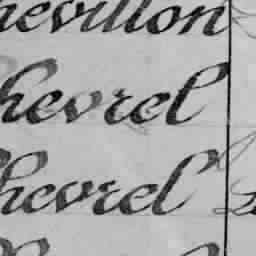 hevillon
hevrel
hevrel